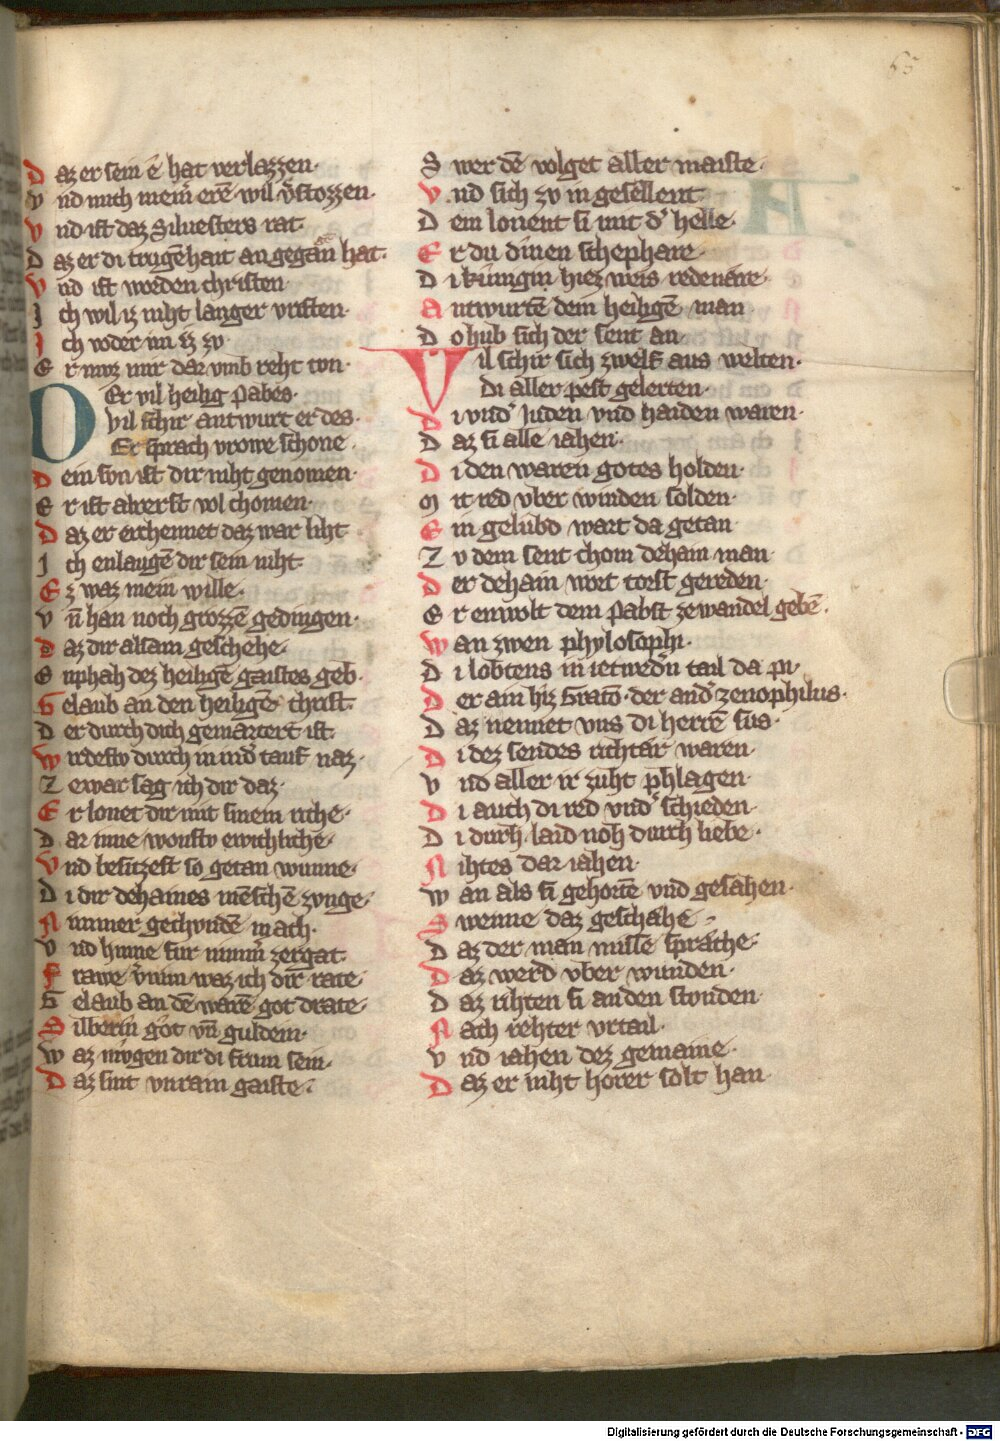 63
D az er sein ē hat verlazzen·
V nd mich mein̄ erē wil v̄stozzen·
V nd ist daz Siluesters rat·
D az er di trvgēhait an gegan hat·
V nd ist worden christen·
I ch wil iz niht langer vristen·
I ch voder im iz zv
E r mvz mir dar vmb reht tvn·
D Er vil heilig Pabes·
vil schir antwurt er des·
Er sprach vrowe schone·
D ein svn ist dir niht genomen·
E r ist alrerst wol chomen·
D az er erchennet daz war liht·
I ch enlaugē dir sein niht·
E z waz mein wille·
V n̄ han noch grozzē gedingen·
D az dir alsam geschehe·
E nphah dez heiligē gaistes geb·
G elaub an den heiligē christ·
D er durch dich gemartert ist·
W irdestv durch in in d' tauf naz·
Z ewar sag ich dir daz·
E r lonet dir mit sinem riche·
D ar inne wonstv ewichlichē·
V nd besitzest so getan wunne·
D i dir dehaines mēschē zvnge·
N immer gechvndē mach·
V nd hinne fur nimm̄ zergat·
F rawe v̄nim waz ich dir rate·
G elaub an dē warē got drate·
S ilberin got vn̄ guldein·
W az mvgen dir di frum sein·
D az sint vnrain gaiste·
S wer dē volget aller maiste·
V nd sich zv in gesellent·
D em lonent si mit d' helle·
E r du dinen schephare·
D i kunigin hiez weis redenäre·
A ntwurtē dem heiligē man
D o hub sich der sent an·
V il schir sich zwelf aus welten·
Di aller pest gelerten·
D i vnd' Juden vnd haiden waren·
D az si alle iahen·
D i den waren gotes holden·
M it red vber winden solden·
E in gelubd wart da getan·
Z v dem sent chom dehain man·
D er dehain wort torst gereden·
E r enwolt dem Pabst ze wandel gebē·
W an zwen phylosophi·
D i lobtens in ietwedn̄ tail da pi·
D er ain hiz Gratō· der and' zenophilus·
D az nennet vns di herrē sus·
D i dez sendes richtär waren·
V nd aller ir zuht phlagen·
D i auch di red vnd' schieden·
D i durh laid noh durch liebe·
N ihtes dar iahen·
W an als si gehortē vnd gesahen·
S wenne daz geschahe·
D az der man missē sprache·
D az werd vber wunden·
D az rihten si an den stvnden·
N ach rehter vrtail·
V nd iahen dez gemaine·
D az er niht horer solt han·
Digitalisierung gefördert durch die Deutsche Forschungsgemeinschaft - DFG